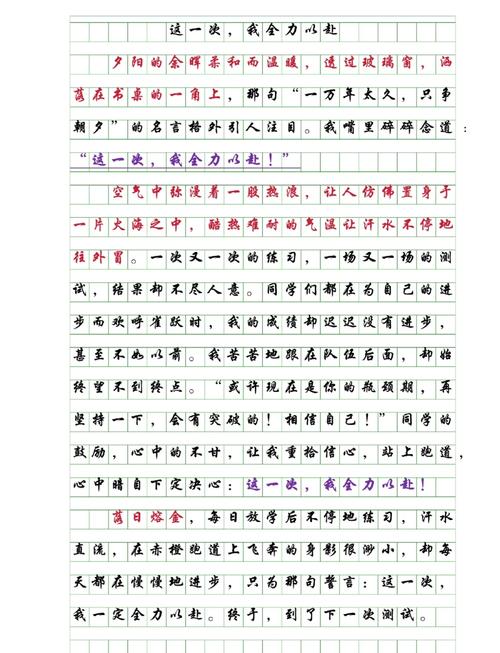 这一次，我全力以赴
夕阳的余晖柔和而温暖，透过玻璃窗，洒
落在书桌的一角上，那句“一万年太久，只争
朝夕”的名言格外引人注目。我嘴里碎碎念道：
“这一次，我全力以赴！”
空气中弥漫着一股热浪，让人仿佛置身于
一片火海之中，酷热难耐的气温让汗水不停地
往外冒。一次又一次的练习，一场又一场的测
试，结果却不尽人意。同学们都在为自己的进
步而欢呼雀跃时，我的成绩却迟迟没有进步，
甚至不如以前。我苦苦地跟在队伍后面，却始
终望不到终点。“或许现在是你的瓶颈期，再
坚持一下，会有突破的！相信自己！”同学的
鼓励，心中的不甘，让我重拾信心，站上跑道，
心中暗自下定决心：这一次，我全力以赴！
落日熔金，每日放学后不停地练习，汗水
直流，在赤橙跑道上飞奔的身影很渺小，却每
天都在慢慢地进步，只为那句誓言：这一次，
我一定全力以赴。终于，到了下一次测试。